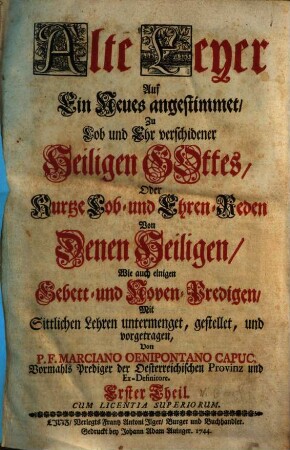 Alte Leyer
Auf
Ein Neues angestimmet/
Zu
Lob und Ehr verschidener
Heiligen GOttes/
Oder
Kurtze Lob- und Ehren-Reden
Von
Denen Heiligen/
Wie auch einigen
Gebett- und Noven-Predigen/
Mit
Sittlichen Lehren untermenget, gestellet, und
vorgetragen,
Von
P. F. MARCIANO OENIPONTANO CAPUC.
Vormahls Prediger der Oesterreichischen Provinz und
Ex-Definitore.
Erster Theil.
CUM LICENTIA SUPERIORUM.
Verlegts Frantz Antoni Ilger/ Burger und Buchhandler.
Gedruckt bey Johann Adam Auinger. 1744.